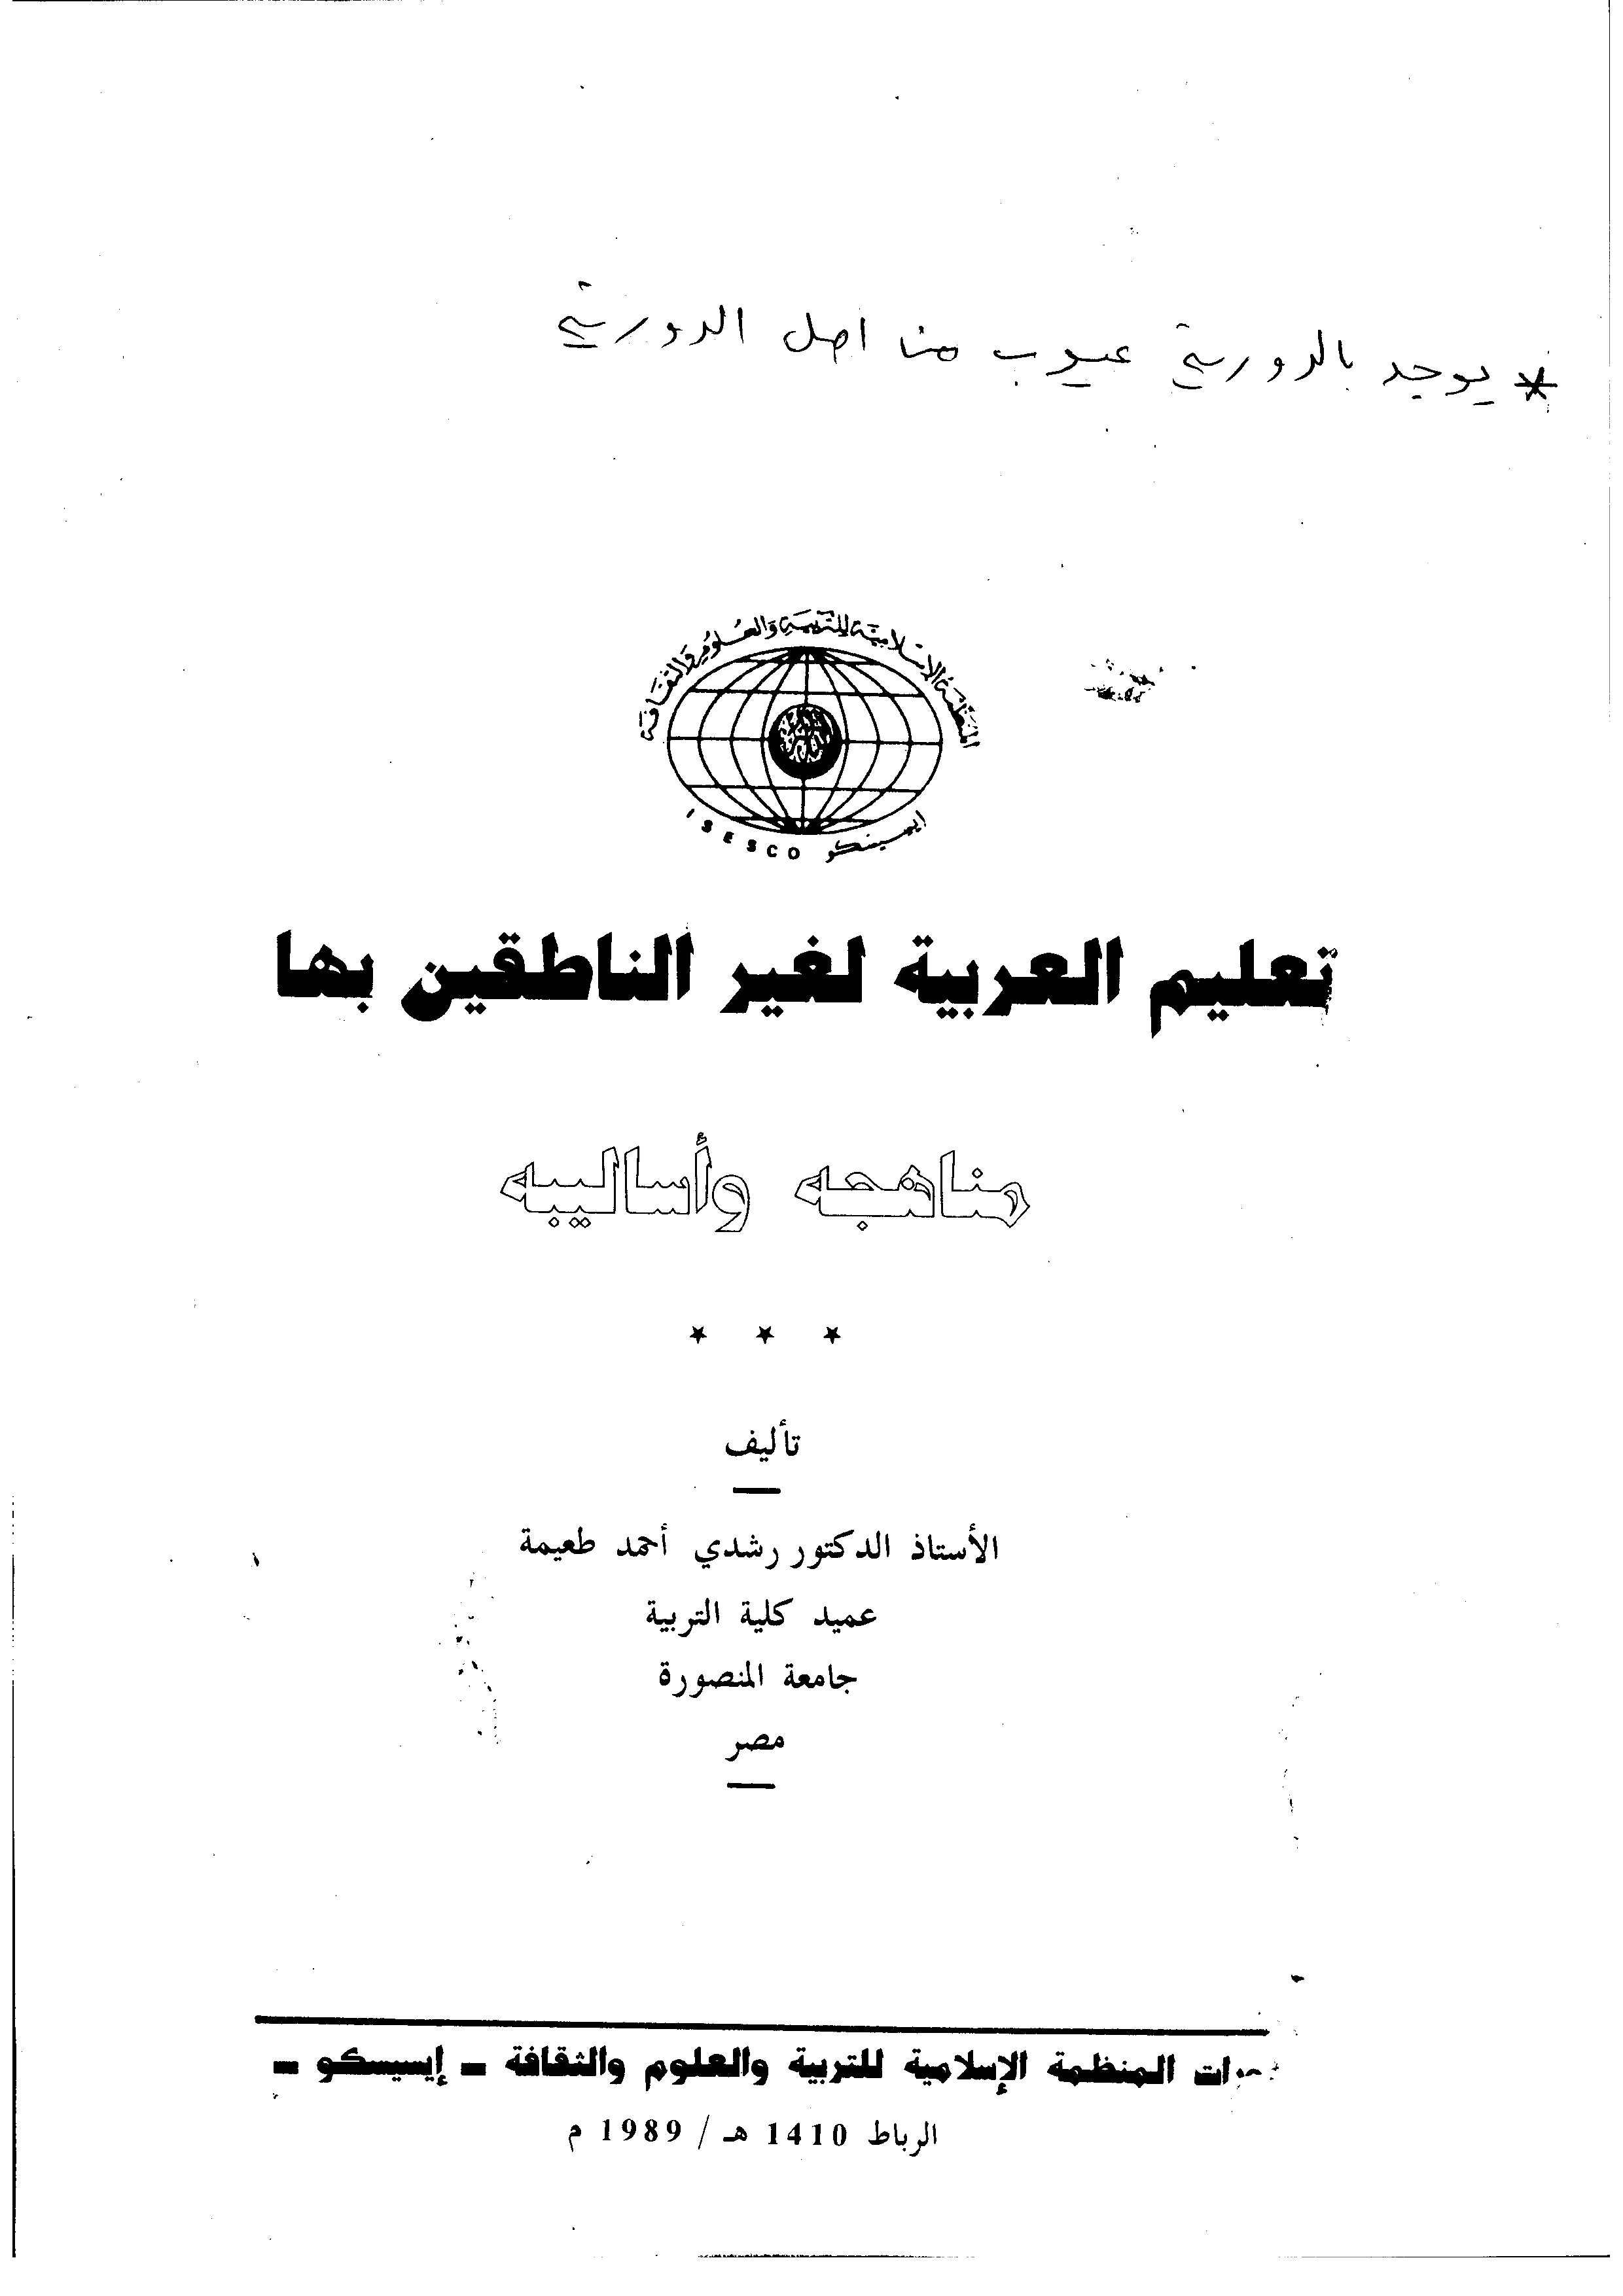 * يوجد بالدورية عيوب من اصل الدورية
المنظمة الإسلامية للتربية والعلوم والثقافة
ISESCO ايسيسكو
تعليم العربية لغير الناطقين بها
مناهجه وأساليبه
* * *
تأليف
الأستاذ الدكتور رشدي أحمد طعيمة
عميد كلية التربية
جامعة المنصورة
مصر
المنظمة الإسلامية للتربية والعلوم والثقافة ـ إيسيسكو ـ
الرباط 1410 هـ / 1989 م